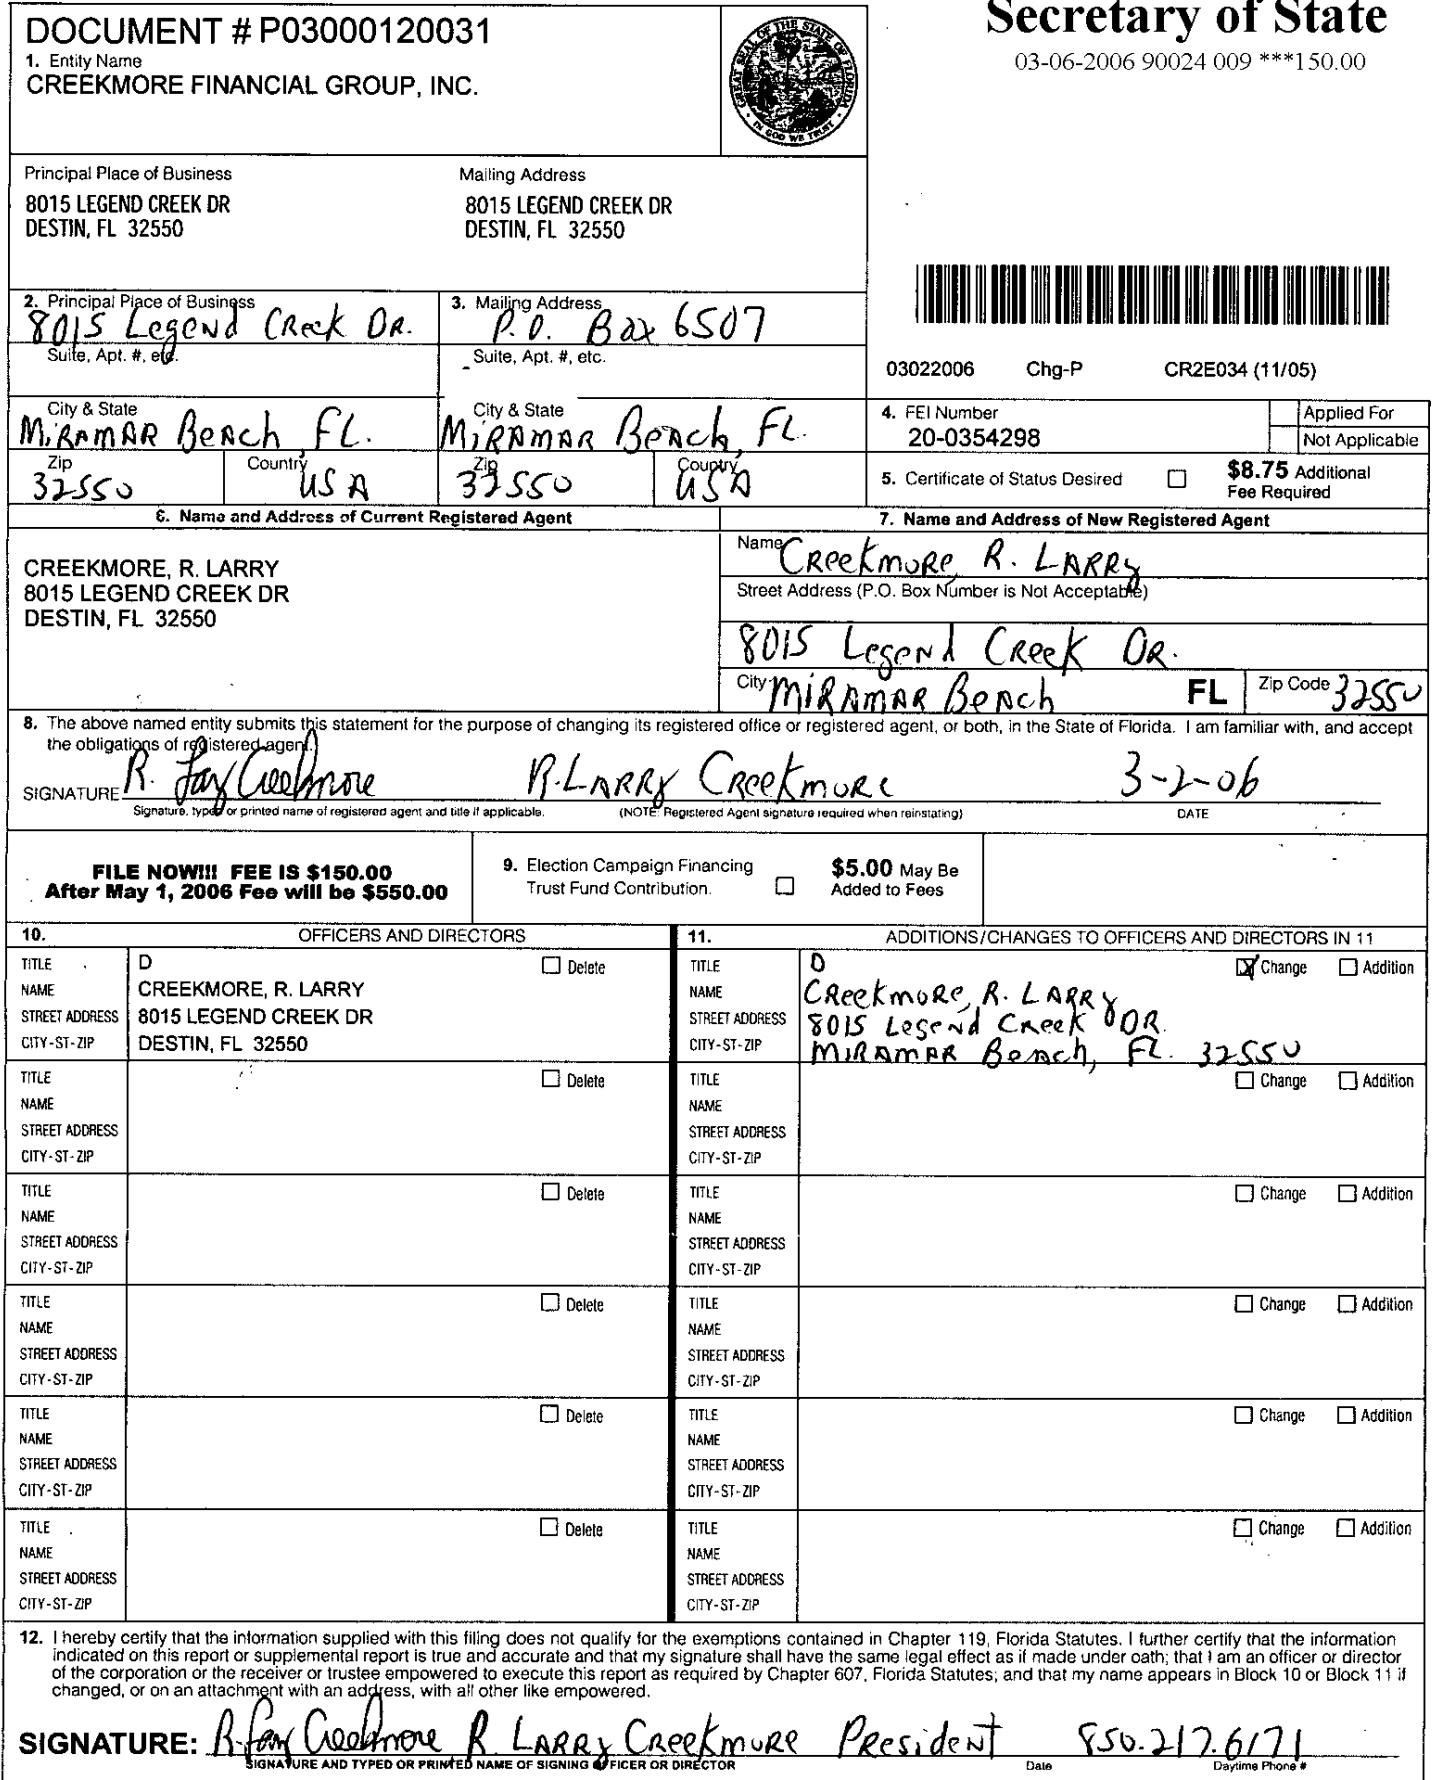 Secretary of State
03-06-2006 90024 009 ***150.00
DOCUMENT # P03000120031
1. Entity Name
CREEKMORE FINANCIAL GROUP, INC.
GREAT SEAL OF THE STATE OF FLORIDA
IN GOD WE TRUST
Principal Place of Business
8015 LEGEND CREEK DR
DESTIN, FL 32550
Mailing Address
8015 LEGEND CREEK DR
DESTIN, FL 32550
2. Principal Place of Business
8015 Legend Creek DR.
Suite, Apt. #, etc.
City & State
MIRAMAR Beach FL.
Zip
32550
Country
USA
3. Mailing Address
P.O. Box 6507
Suite, Apt. #, etc.
City & State
MIRAMAR Beach, FL.
Zip
32550
Country
USA
03022006 Chg-P CR2E034 (11/05)
4. FEI Number
20-0354298
Applied For
Not Applicable
5. Certificate of Status Desired
$8.75 Additional
Fee Required
6. Name and Address of Current Registered Agent
CREEKMORE, R. LARRY
8015 LEGEND CREEK DR
DESTIN, FL 32550
7. Name and Address of New Registered Agent
Name Creekmore, R. LARRY
Street Address (P.O. Box Number is Not Acceptable)
8015 Legend Creek DR.
City MIRAMAR Beach FL Zip Code 32550
8. The above named entity submits this statement for the purpose of changing its registered office or registered agent, or both, in the State of Florida. I am familiar with, and accept
the obligations of registered agent.
SIGNATURE R. Larry Creekmore R. LARRY Creekmore 3-2-06
Signature, typed or printed name of registered agent and title if applicable. (NOTE: Registered Agent signature required when reinstating) DATE
FILE NOW!!! FEE IS $150.00
After May 1, 2006 Fee will be $550.00
9. Election Campaign Financing
Trust Fund Contribution.
$5.00 May Be
Added to Fees
10. OFFICERS AND DIRECTORS
TITLE D Delete
NAME CREEKMORE, R. LARRY
STREET ADDRESS 8015 LEGEND CREEK DR
CITY-ST-ZIP DESTIN, FL 32550
TITLE Delete
NAME
STREET ADDRESS
CITY-ST-ZIP
TITLE Delete
NAME
STREET ADDRESS
CITY-ST-ZIP
TITLE Delete
NAME
STREET ADDRESS
CITY-ST-ZIP
TITLE Delete
NAME
STREET ADDRESS
CITY-ST-ZIP
TITLE Delete
NAME
STREET ADDRESS
CITY-ST-ZIP
11. ADDITIONS/CHANGES TO OFFICERS AND DIRECTORS IN 11
TITLE D Change Addition
NAME Creekmore, R. LARRY
STREET ADDRESS 8015 Legend Creek DR.
CITY-ST-ZIP MIRAMAR Beach, FL. 32550
TITLE Change Addition
NAME
STREET ADDRESS
CITY-ST-ZIP
TITLE Change Addition
NAME
STREET ADDRESS
CITY-ST-ZIP
TITLE Change Addition
NAME
STREET ADDRESS
CITY-ST-ZIP
TITLE Change Addition
NAME
STREET ADDRESS
CITY-ST-ZIP
TITLE Change Addition
NAME
STREET ADDRESS
CITY-ST-ZIP
12. I hereby certify that the information supplied with this filing does not qualify for the exemptions contained in Chapter 119, Florida Statutes. I further certify that the information
indicated on this report or supplemental report is true and accurate and that my signature shall have the same legal effect as if made under oath; that I am an officer or director
of the corporation or the receiver or trustee empowered to execute this report as required by Chapter 607, Florida Statutes; and that my name appears in Block 10 or Block 11 if
changed, or on an attachment with an address, with all other like empowered.
SIGNATURE: R. Larry Creekmore R. LARRY Creekmore President 850.217.6171
SIGNATURE AND TYPED OR PRINTED NAME OF SIGNING OFFICER OR DIRECTOR Date Daytime Phone #